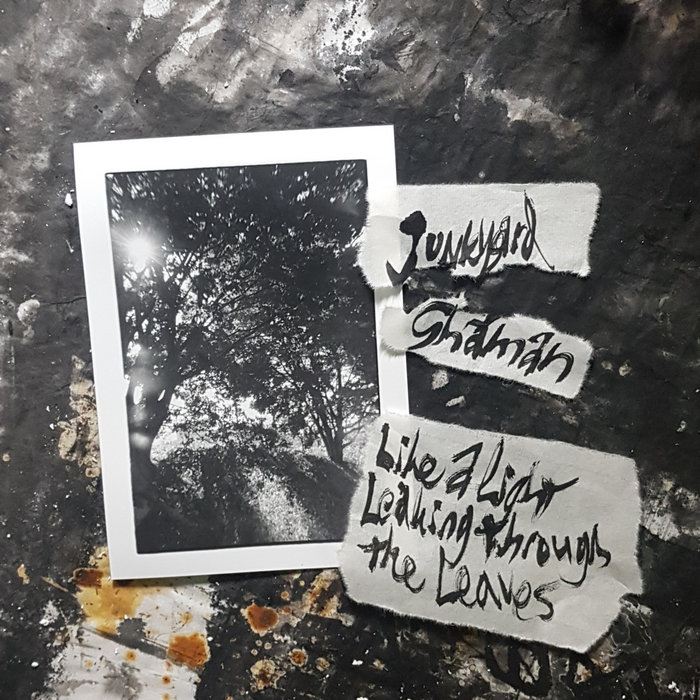 Junkyard
Shaman
Like a Light
Leaking through
the Leaves